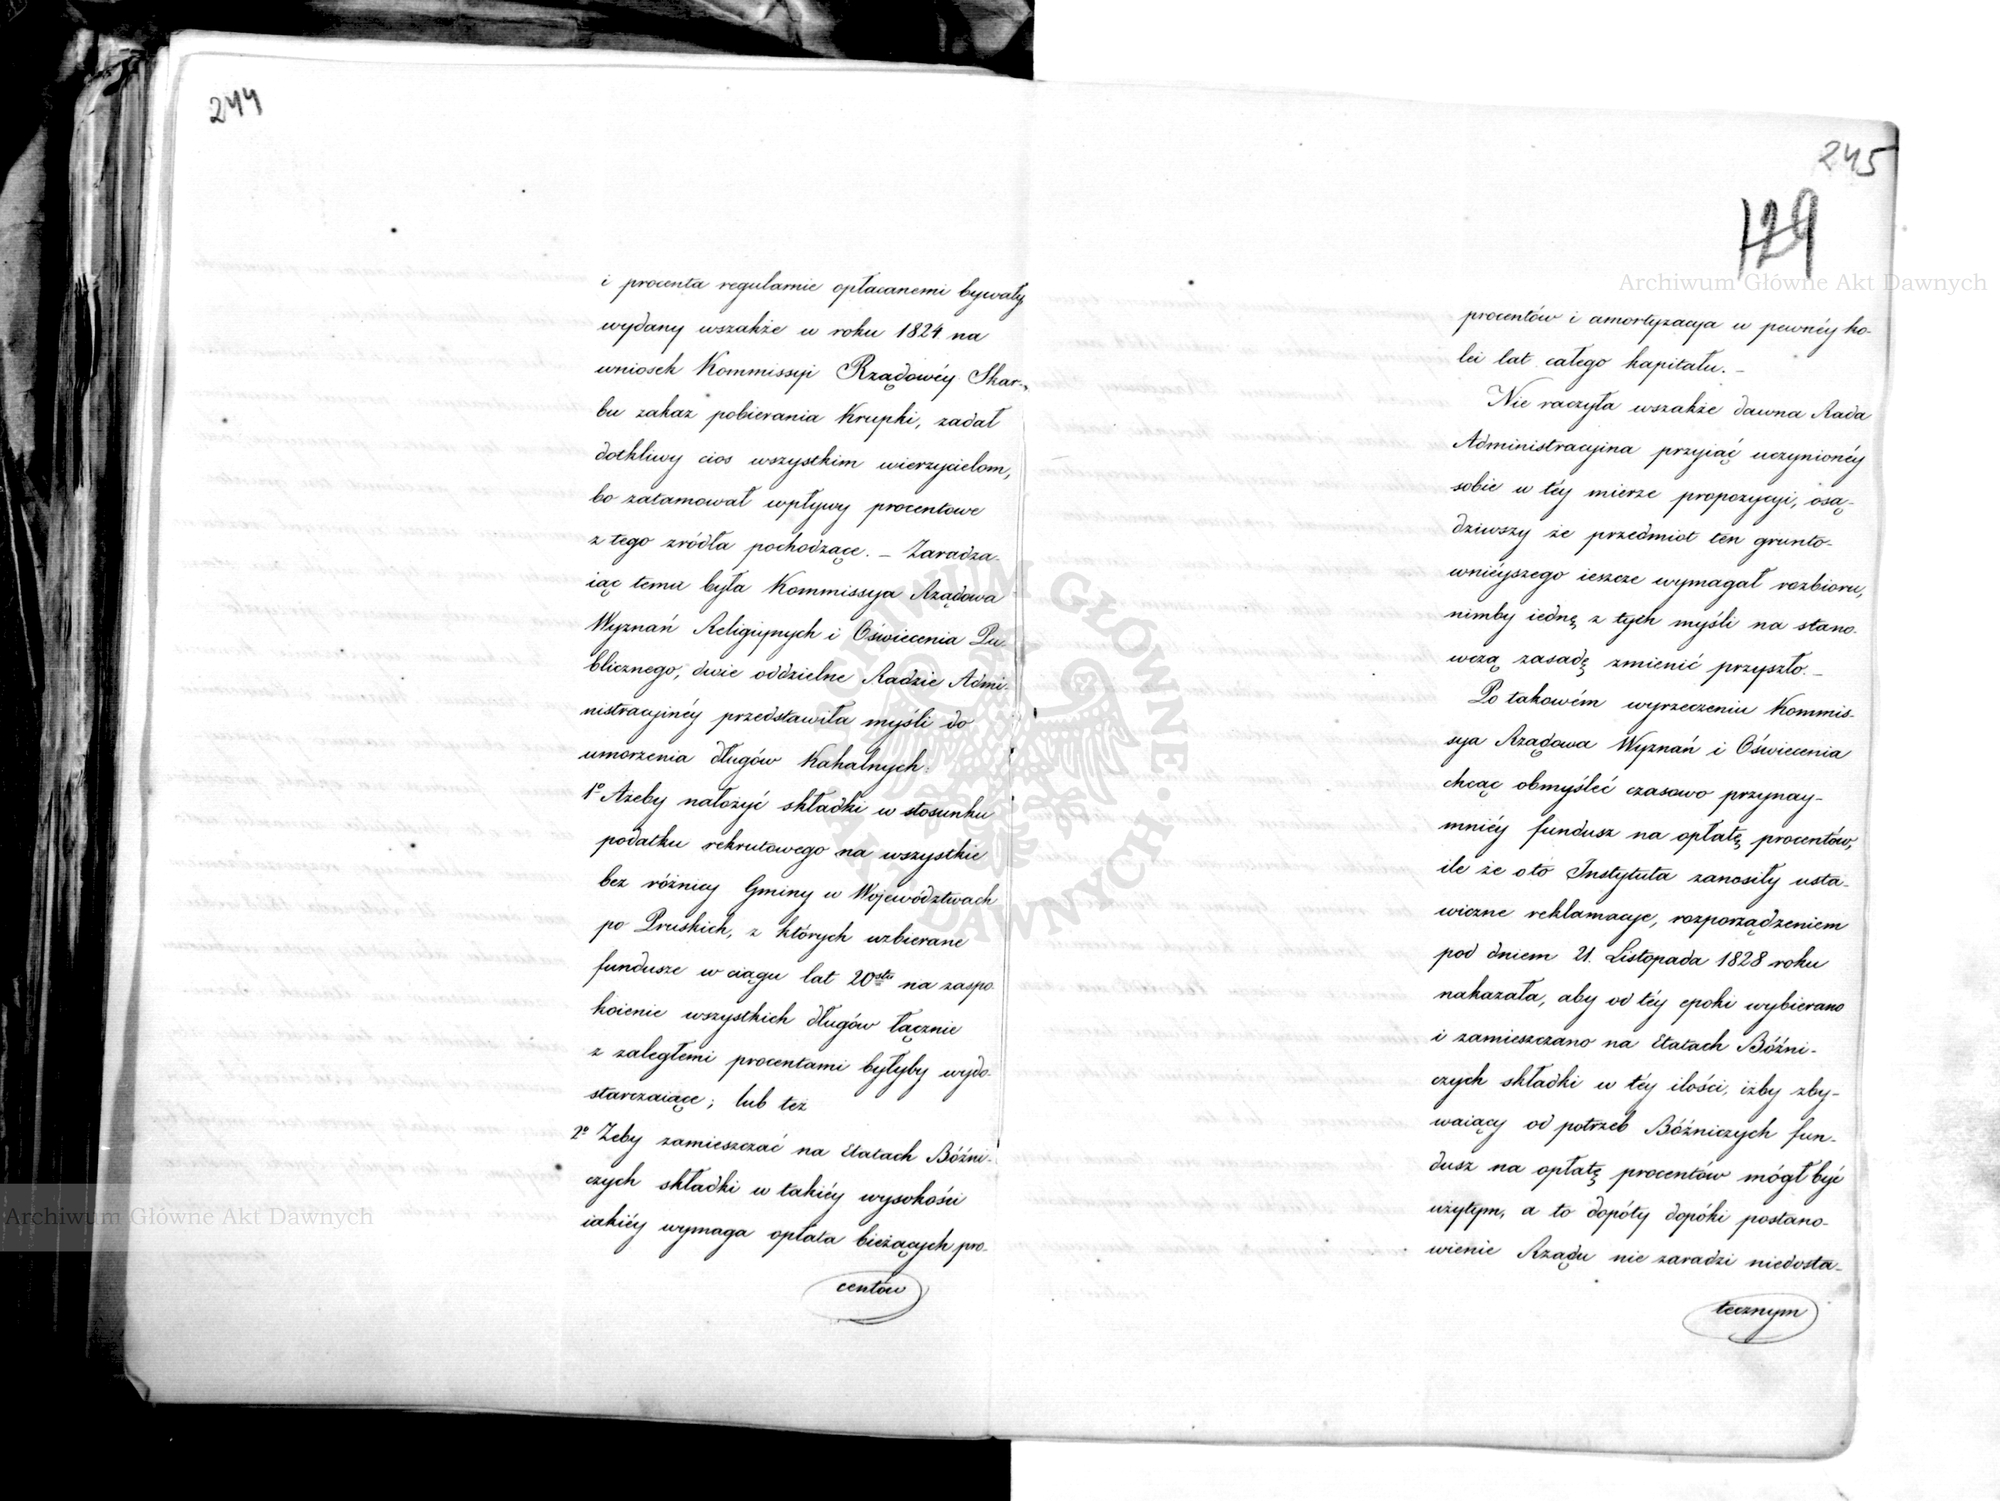 244
i procenta regularnie opłacanemi bywały,
wydany wszakże w roku 1824 na
wniosek Kommissyi Rządowéy Skar-
bu zakaz pobierania Krupki, zadał
dotkliwy cios wszystkim wierzycielom,
bo zatamował wpływy procentowe
z tego zródła pochodzące. – Zaradza-
iąc temu była Kommissya Rządowa
Wyznań Religiynych i Oświecenia Pu-
blicznego, dwie oddzielne Radzie Admi-
nistracyinéy przedstawiła myśli do
umorzenia długów Kahalnych:
1º Ażeby nałożyć składki w stosunku
podatku rekrutowego na wszystkie
bez różnicy Gminy w Województwach
po Pruskich, z których uzbierane
fundusze w ciągu lat 20stu na zaspo-
koienie wszystkich długów łącznie
z zaległemi procentami byłyby wydo-
starczaiące; lub też
2º Żeby zamieszczać na Etatach Bóżni-
czych składki w takiéy wysokości
iakiéy wymaga opłata bieżących pro-
centów
245
129
procentów i amortyzacya w pewnéy ko-
lei lat całego kapitału. –
Nie raczyła wszakże dawna Rada
Administracyina przyiąć uczynionéy
sobie w téy mierze propozycyi, osą-
dziwszy że przedmiot ten grunto-
wniéyszego ieszcze wymagał rozbioru,
nimby iednę z tych myśli na stano-
wczą zasadę zmienić przyszło. –
Po takowém wyrzeczeniu Kommis-
sya Rządowa Wyznań i Oświecenia
chcąc obmyśleć czasowo przynay-
mniéy fundusz na opłatę procentów,
ile że oto Instytuta zanosiły usta-
wiczne reklamacye, rozporządzeniem
pod dniem 21. Listopada 1828 roku
nakazała, aby od téy epoki wybierano
i zamieszczano na Etatach Bóżni-
czych składki w téy ilości, iżby zby-
waiący od potrzeb Bóżniczych fun-
dusz na opłatę procentów mógł być
użytym, a to dopóty dopóki postano-
wienie Rządu nie zaradzi niedosta-
tecznym
Archiwum Główne Akt Dawnych
Archiwum Główne Akt Dawnych
ARCHIWUM GŁÓWNE AKT DAWNYCH